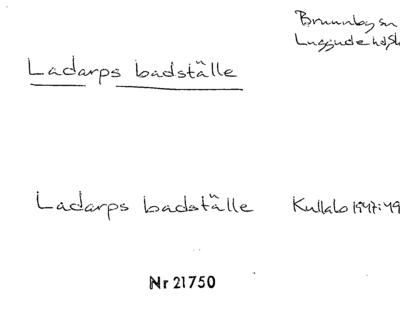 Brunnby sn
Luggude hd, Sk
Ladarps badställe
Ladarps badställe Kullabo 1947:49
Nr 21750